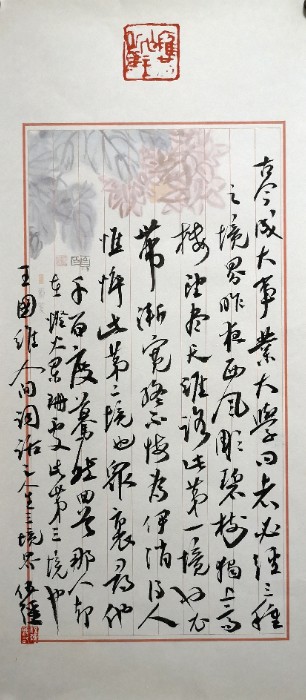 古今成大事業大學问者必經三種
之境界昨夜西風凋碧樹獨上高
樓望盡天涯路此第一境也衣
帶漸寬終不悔為伊消得人
憔悴此第二境也眾裏尋他
千百度驀然回首那人却
在燈火闌珊處此第三境也
王國維人间词話人生三境界